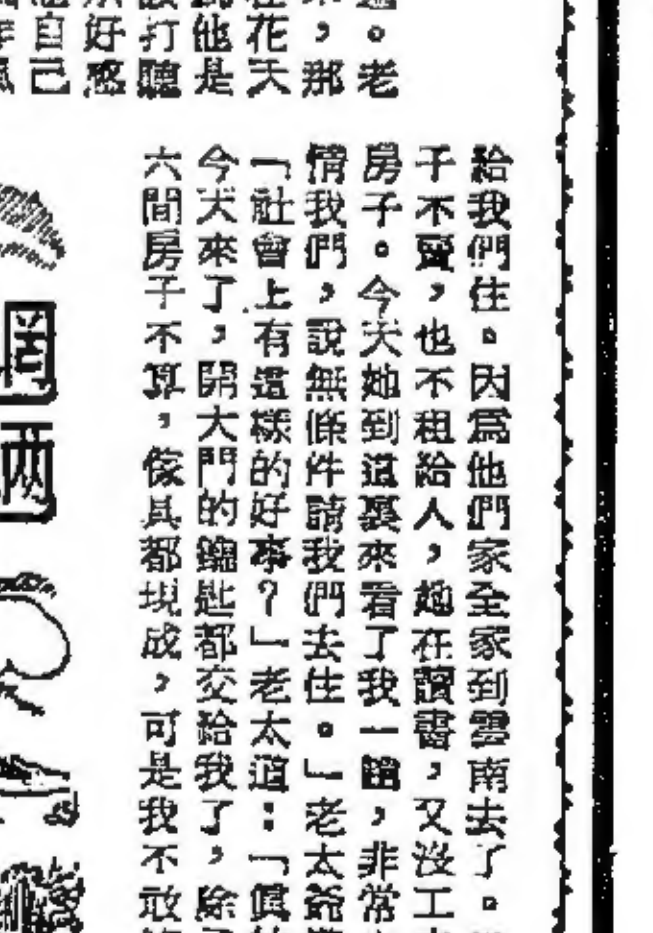 老
那
花天
他是
打聽
好感
自己
給我們住。因為他們家全家到雲南去了。
子不賣,也不租給人,她在讀書,又沒工
房子。今天她到這裏來看了我一趟,非常
情我們,說無條件請我們去住。」老太爺
「社會上有這樣的好事?」老太道:「真的
今天來了,開大門的鑰匙都交給我了,除
六間房子不算,傢具都現成,可是我不敢